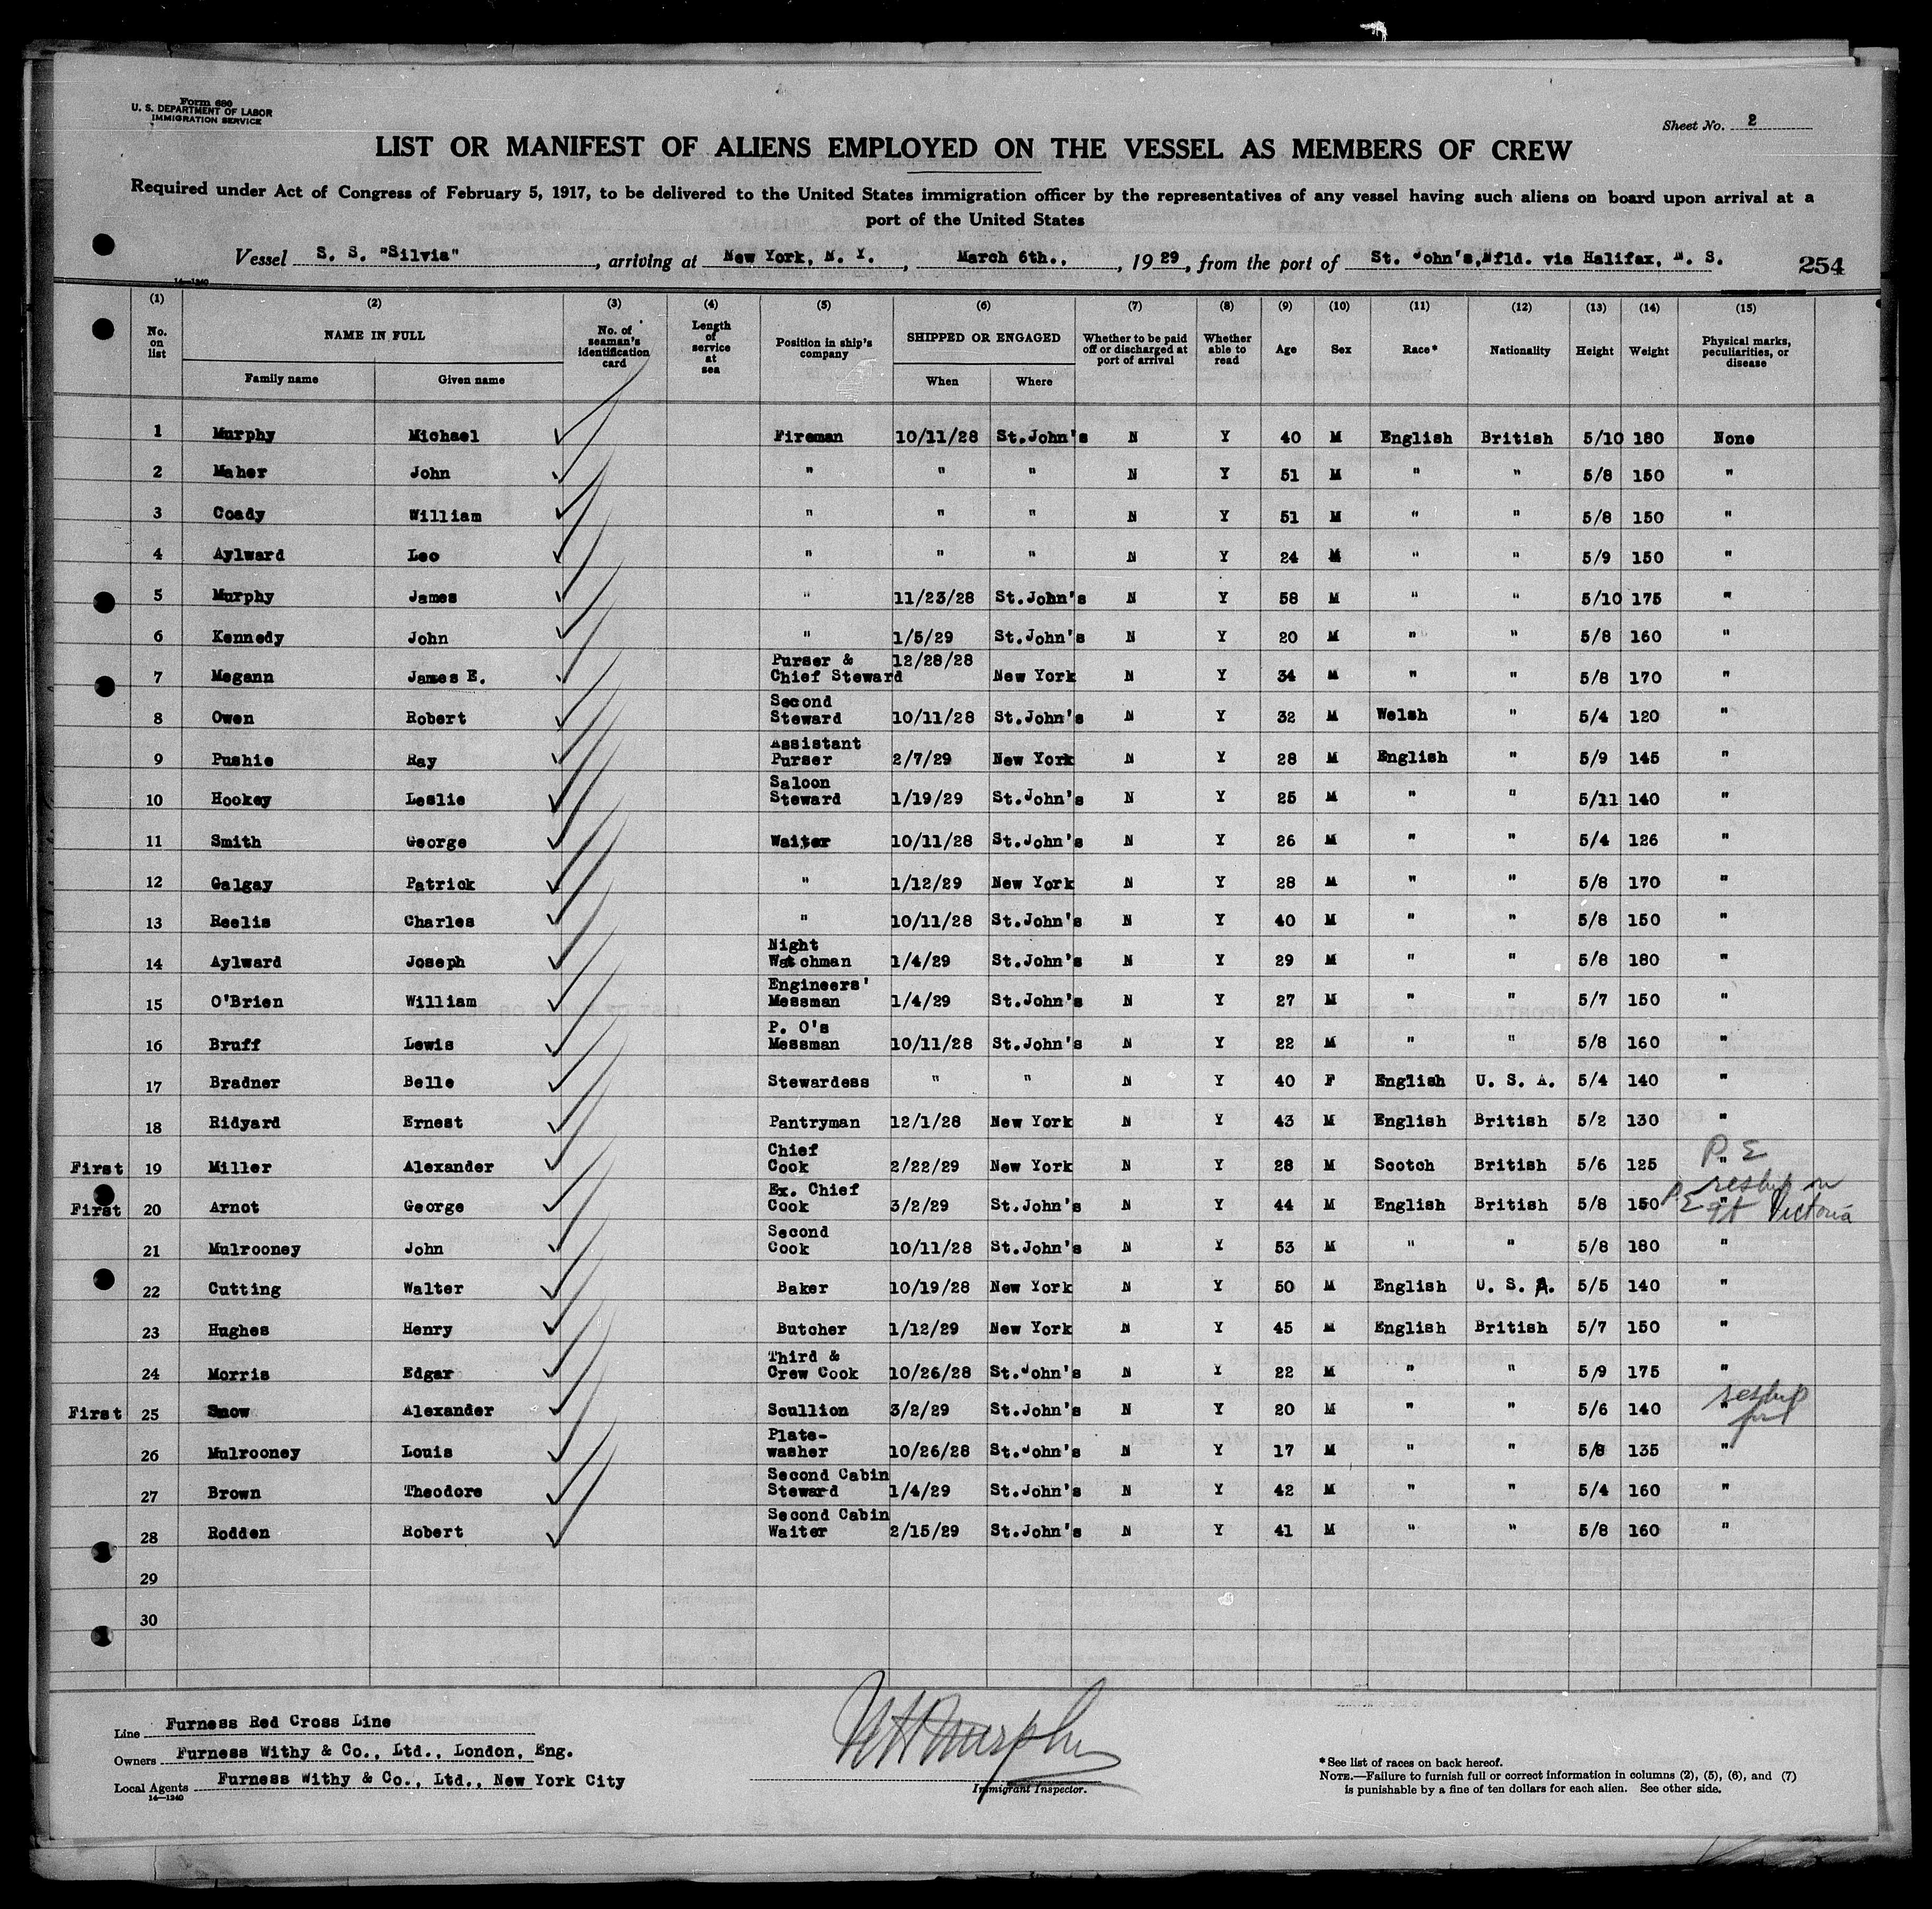 Form 680
U. S. DEPARTMENT OF LABOR
IMMIGRATION SERVICE
Sheet No. 2
LIST OR MANIFEST OF ALIENS EMPLOYED ON THE VESSEL AS MEMBERS OF CREW
Required under Act of Congress of February 5, 1917, to be delivered to the United States immigration officer by the representatives of any vessel having such aliens on board upon arrival at a
port of the United States
Vessel S. S. "Silvia", arriving at New York, N. Y., March 6th., 1929, from the port of St. John's, Nfld. via Halifax, N. S. 254
14—1240
(1) (2) (3) (4) (5) (6) (7) (8) (9) (10) (11) (12) (13) (14) (15)
No. on list NAME IN FULL Family name Given name No. of seaman's identification card Length of service at sea Position in ship's company SHIPPED OR ENGAGED When Where Whether to be paid off or discharged at port of arrival Whether able to read Age Sex Race* Nationality Height Weight Physical marks, peculiarities, or disease
1 Murphy Michael Fireman 10/11/28 St.John's N Y 40 M English British 5/10 180 None
2 Maher John " " " N Y 51 M " " 5/8 150 "
3 Coady William " " " N Y 51 M " " 5/8 150 "
4 Aylward Leo " " " N Y 24 M " " 5/9 150 "
5 Murphy James " 11/23/28 St.John's N Y 58 M " " 5/10 175 "
6 Kennedy John " 1/5/29 St.John's N Y 20 M " " 5/8 160 "
7 Megann James E. Purser & Chief Steward 12/28/28 New York N Y 34 M " " 5/8 170 "
8 Owen Robert Second Steward 10/11/28 St.John's N Y 32 M Welsh " 5/4 120 "
9 Pushie Ray Assistant Purser 2/7/29 New York N Y 28 M English " 5/9 145 "
10 Hookey Leslie Saloon Steward 1/19/29 St.John's N Y 25 M " " 5/11 140 "
11 Smith George Waiter 10/11/28 St.John's N Y 26 M " " 5/4 126 "
12 Galgay Patrick " 1/12/29 New York N Y 28 M " " 5/8 170 "
13 Reelis Charles " 10/11/28 St.John's N Y 40 M " " 5/8 150 "
14 Aylward Joseph Night Watchman 1/4/29 St.John's N Y 29 M " " 5/8 180 "
15 O'Brien William Engineers' Messman 1/4/29 St.John's N Y 27 M " " 5/7 150 "
16 Bruff Lewis P. O's Messman 10/11/28 St.John's N Y 22 M " " 5/8 160 "
17 Bradner Belle Stewardess " " N Y 40 F English U. S. A. 5/4 140 "
18 Ridyard Ernest Pantryman 12/1/28 New York N Y 43 M English British 5/2 130 "
First 19 Miller Alexander Chief Cook 2/22/29 New York N Y 28 M Scotch British 5/6 125 " P E
First 20 Arnot George Ex. Chief Cook 3/2/29 St.John's N Y 44 M English British 5/8 150 " P E reship on Ft Victoria
21 Mulrooney John Second Cook 10/11/28 St.John's N Y 53 M " " 5/8 180 "
22 Cutting Walter Baker 10/19/28 New York N Y 50 M English U. S. A. 5/5 140 "
23 Hughes Henry Butcher 1/12/29 New York N Y 45 M English British 5/7 150 "
24 Morris Edgar Third & Crew Cook 10/26/28 St.John's N Y 22 M " " 5/9 175 "
First 25 Snow Alexander Scullion 3/2/29 St.John's N Y 20 M " " 5/6 140 " reship
26 Mulrooney Louis Plate-washer 10/26/28 St.John's N Y 17 M " " 5/8 135 "
27 Brown Theodore Second Cabin Steward 1/4/29 St.John's N Y 42 M " " 5/4 160 "
28 Rodden Robert Second Cabin Waiter 2/15/29 St.John's N Y 41 M " " 5/8 160 "
29
30
Line Furness Red Cross Line
Owners Furness Withy & Co., Ltd., London, Eng.
Local Agents Furness Withy & Co., Ltd., New York City
14—1240
Murphy
Immigrant Inspector.
*See list of races on back hereof.
NOTE.—Failure to furnish full or correct information in columns (2), (5), (6), and (7)
is punishable by a fine of ten dollars for each alien. See other side.